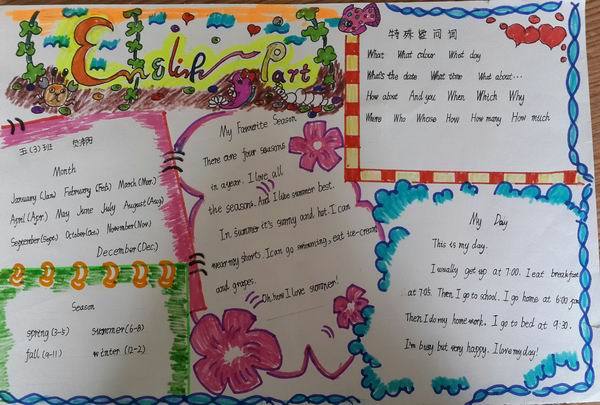 English Part
五(3)班
Month
January (Jan) February (Feb) March (Mar.)
April (Apr.) May June July August (Aug)
September (Sept.) October (Oct.) November (Nov)
December (Dec.)
Season
spring (3-5) summer (6-8)
fall (9-11) winter (12-2)
My Favourite Season
There are four seasons
in a year. I love all
the seasons. And I like summer best.
In summer it's sunny and hot. I can
wear my shorts. I can go swimming, eat ice-cream
and grapes.
Oh, how I love summer!
特殊疑问词
What What colour What day
What's the date What time What about...
How about And you When Which Why
Where Who Whose How How many How much
My Day
This is my day.
I usually get up at 7:00. I eat breakfast
at 7:05. Then I go to school. I go home at 6:00 pm
Then I do my homework. I go to bed at 9:30.
I'm busy but very happy. I love my day!